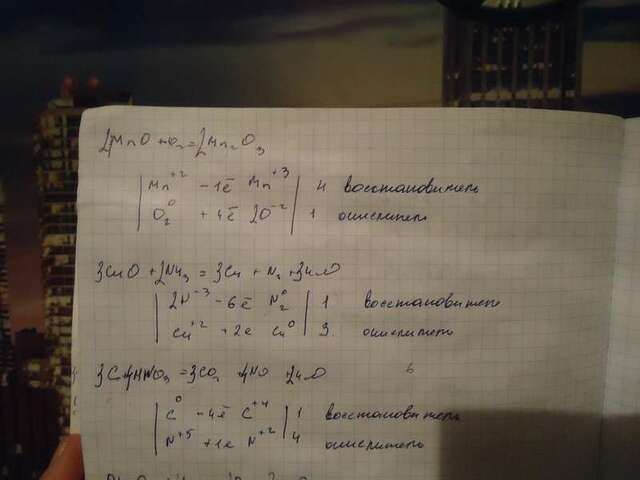 4MnO + O₂ = 2Mn₂O₃
Mn⁺² - 1ē Mn⁺³ | 4 восстановитель
O₂⁰ + 4ē 2O⁻² | 1 окислитель
3CuO + 2NH₃ = 3Cu + N₂ + 3H₂O
2N⁻³ - 6ē N₂⁰ | 1 восстановитель
Cu⁺² + 2e Cu⁰ | 3 окислитель
3C 4HNO₃ = 3CO₂ 4NO 2H₂O
C⁰ - 4ē C⁺⁴ | 1 восстановитель
N⁺⁵ + 1e N⁺² | 4 окислитель